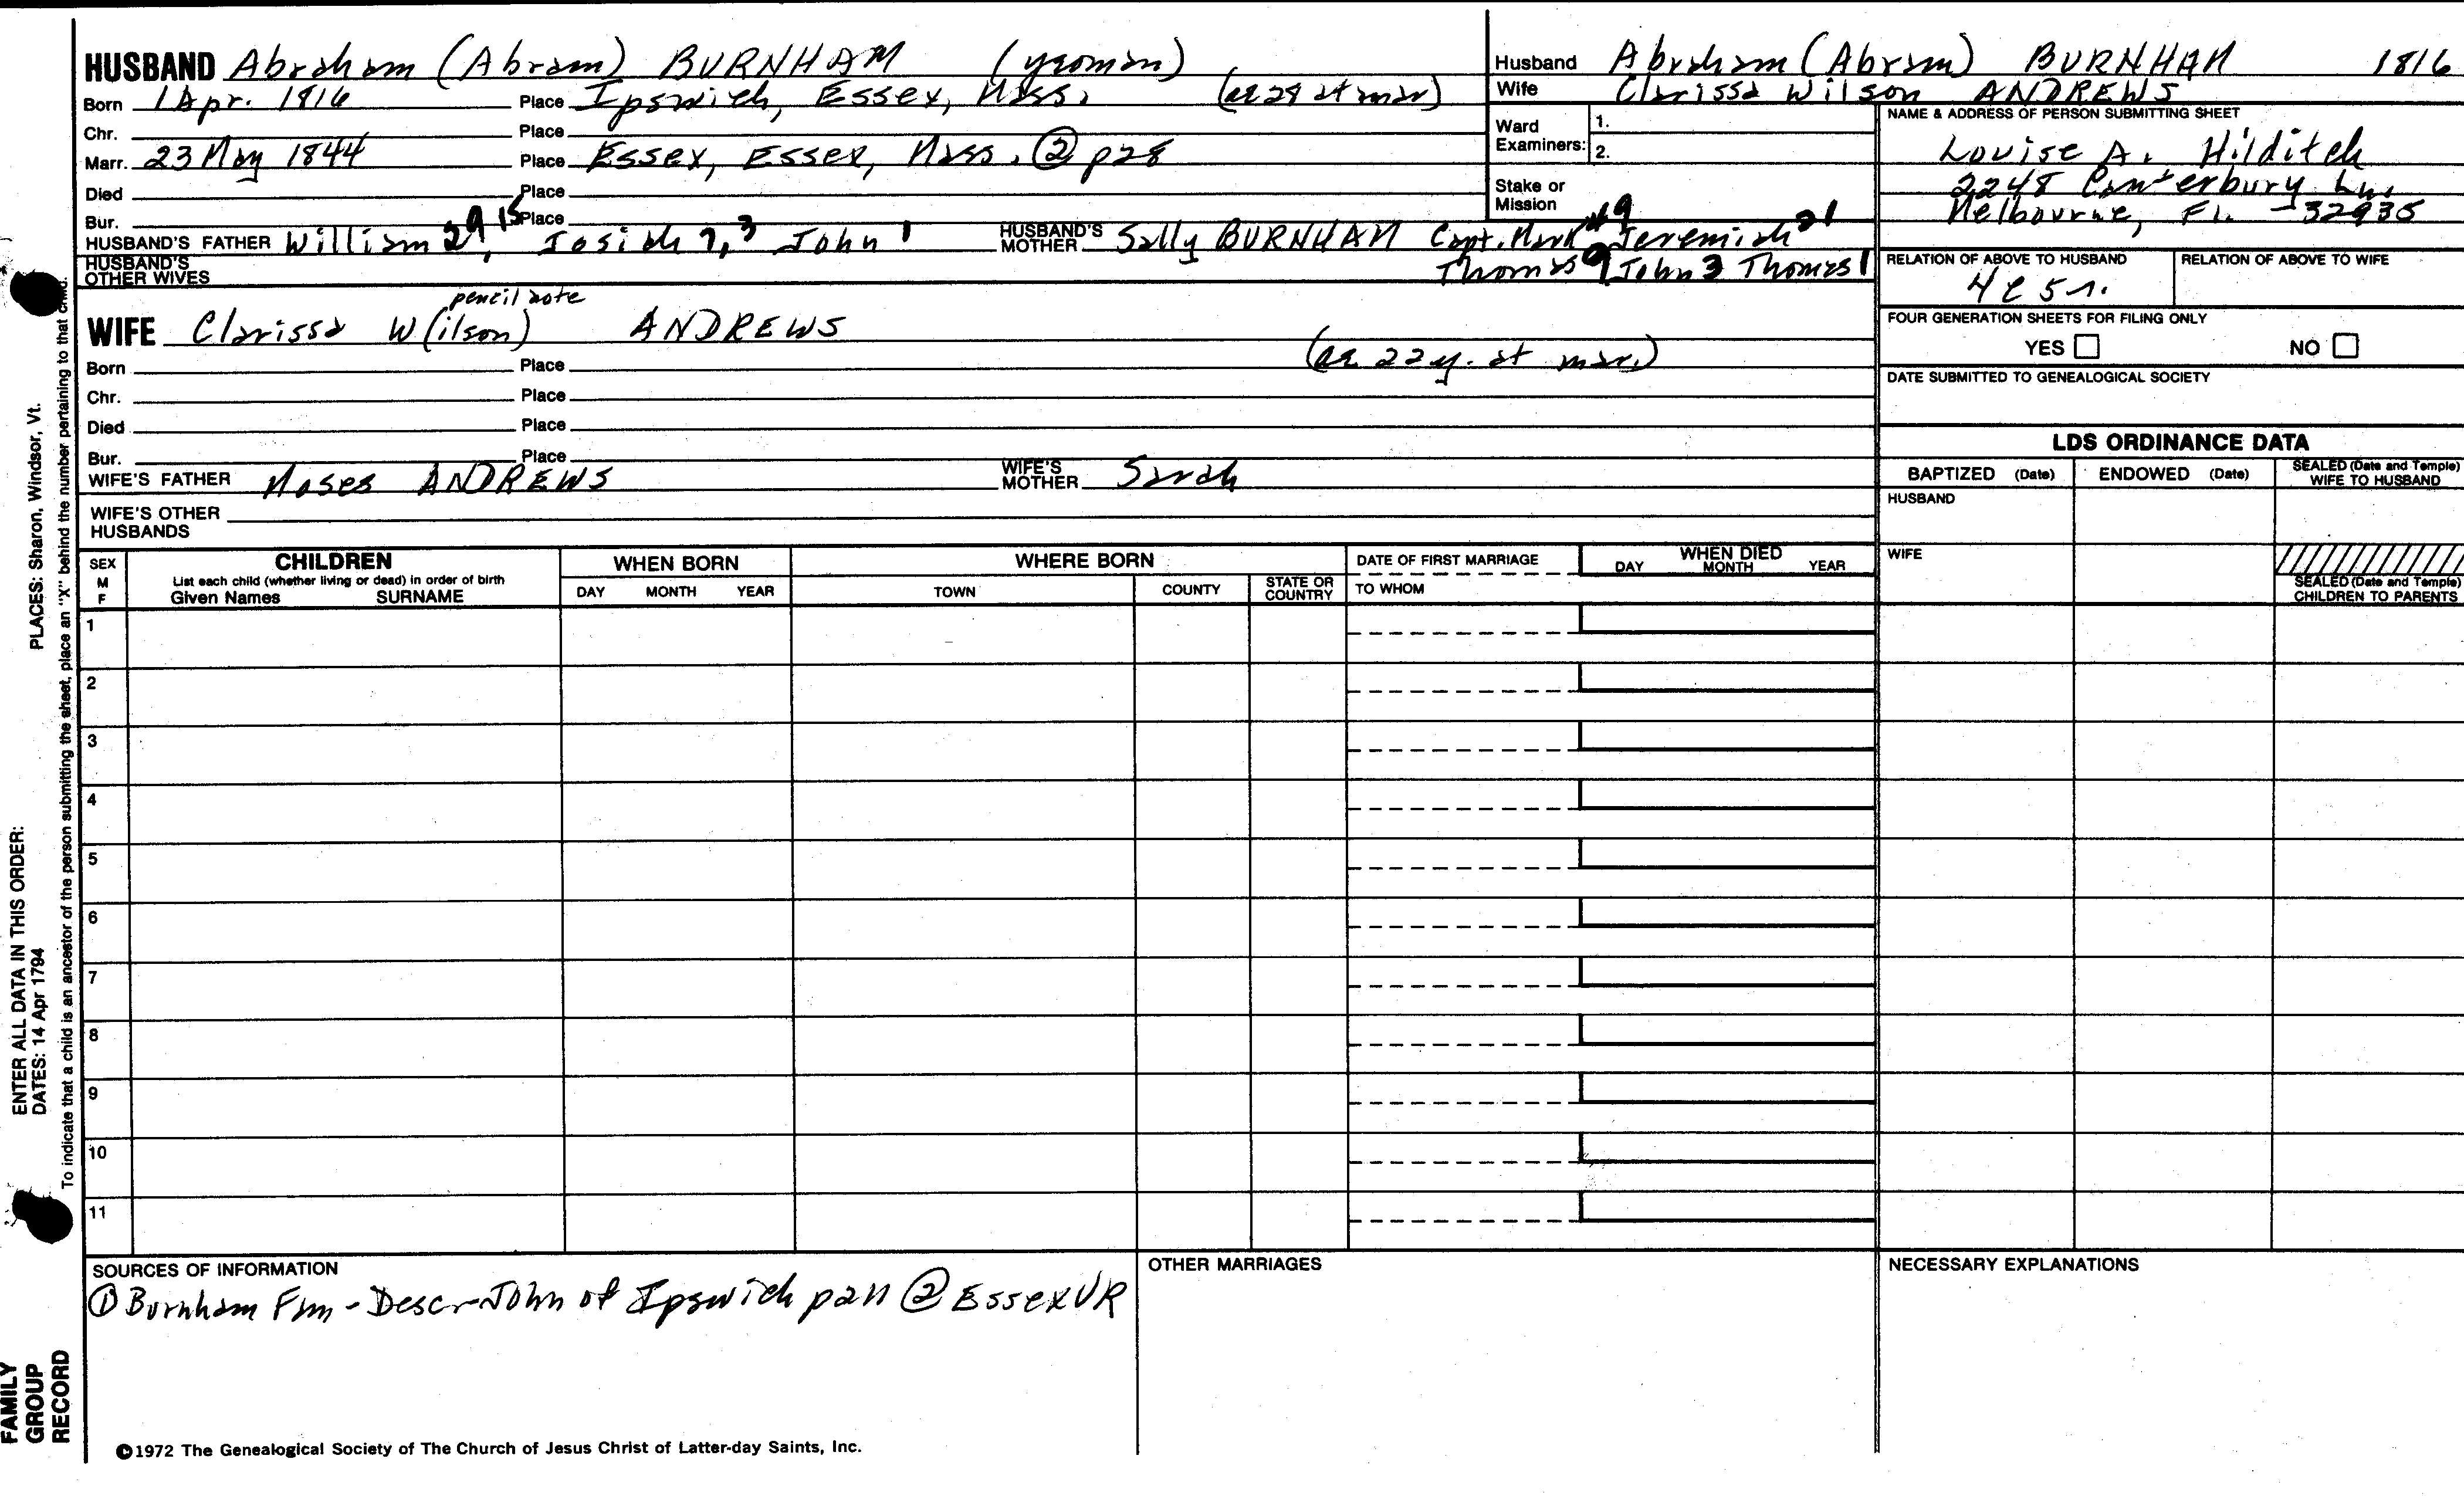 HUSBAND Abraham (Abram) BURNHAM (yeoman)
Born 1 Apr. 1816 Place Ipswich, Essex, Mass. (ae 28 at mar)
Chr. Place
Marr. 23 May 1844 Place Essex, Essex, Mass. ② p28
Died Place
Bur. Place
HUSBAND'S FATHER William 29, 15 Josiah 7, 3 John 1 HUSBAND'S MOTHER Sally BURNHAM Capt. Mark 49 Jeremiah 21
Thomas 9 John 3 Thomas 1
HUSBAND'S OTHER WIVES
pencil note
WIFE Clarissa W(ilson) ANDREWS
(ae 22 y. at mar.)
Born Place
Chr. Place
Died Place
Bur. Place
WIFE'S FATHER Moses ANDREWS WIFE'S MOTHER Sarah
WIFE'S OTHER HUSBANDS
Husband Abraham (Abram) BURNHAM 1816
Wife Clarissa Wilson ANDREWS
Ward Examiners: 1.
2.
Stake or Mission
NAME & ADDRESS OF PERSON SUBMITTING SHEET
Louise A. Hilditch
2248 Canterbury Ln.
Melbourne, FL. - 32935
RELATION OF ABOVE TO HUSBAND RELATION OF ABOVE TO WIFE
4C 5r.
FOUR GENERATION SHEETS FOR FILING ONLY
YES NO
DATE SUBMITTED TO GENEALOGICAL SOCIETY
LDS ORDINANCE DATA
BAPTIZED (Date) ENDOWED (Date) SEALED (Date and Temple) WIFE TO HUSBAND
HUSBAND
WIFE
SEALED (Date and Temple) CHILDREN TO PARENTS
SEX M F
CHILDREN
List each child (whether living or dead) in order of birth
Given Names SURNAME
WHEN BORN
DAY MONTH YEAR
WHERE BORN
TOWN COUNTY STATE OR COUNTRY
DATE OF FIRST MARRIAGE
TO WHOM
WHEN DIED
DAY MONTH YEAR
1
2
3
4
5
6
7
8
9
10
11
SOURCES OF INFORMATION
① Burnham Fam - Desc-John of Ipswich p211 ② Essex VR
OTHER MARRIAGES
NECESSARY EXPLANATIONS
©1972 The Genealogical Society of The Church of Jesus Christ of Latter-day Saints, Inc.
FAMILY GROUP RECORD
ENTER ALL DATA IN THIS ORDER:
DATES: 14 Apr 1794
PLACES: Sharon, Windsor, Vt.
To indicate that a child is an ancestor of the person submitting the sheet, place an "X" behind the number pertaining to that child.